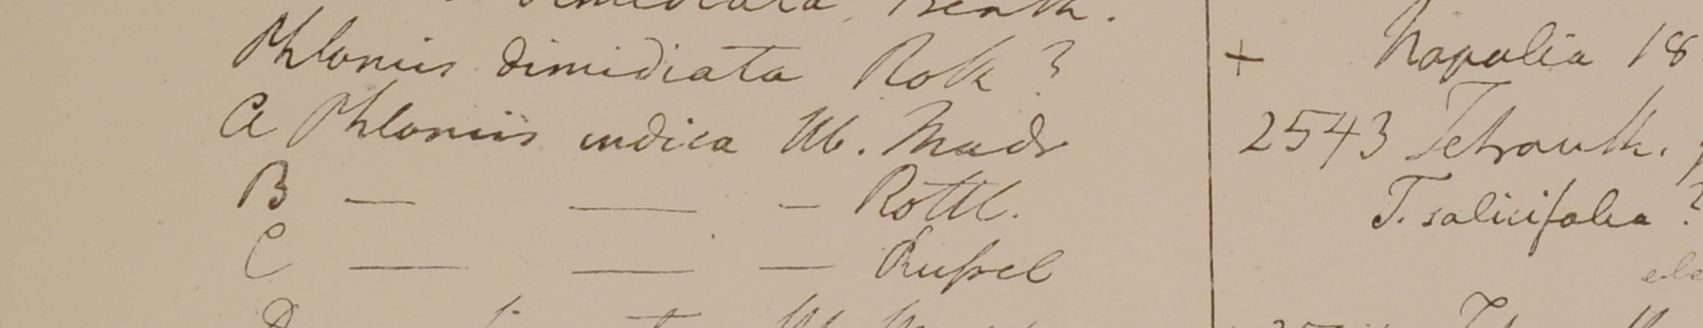 dimidiata Benth.
Phlomis dimidiata Roth ?
A Phlomis indica Hb. Madr
B — — — Rottl.
C — — — Russel
+ Napalia 18
2543 Tetranth.
T. salicifolia ?